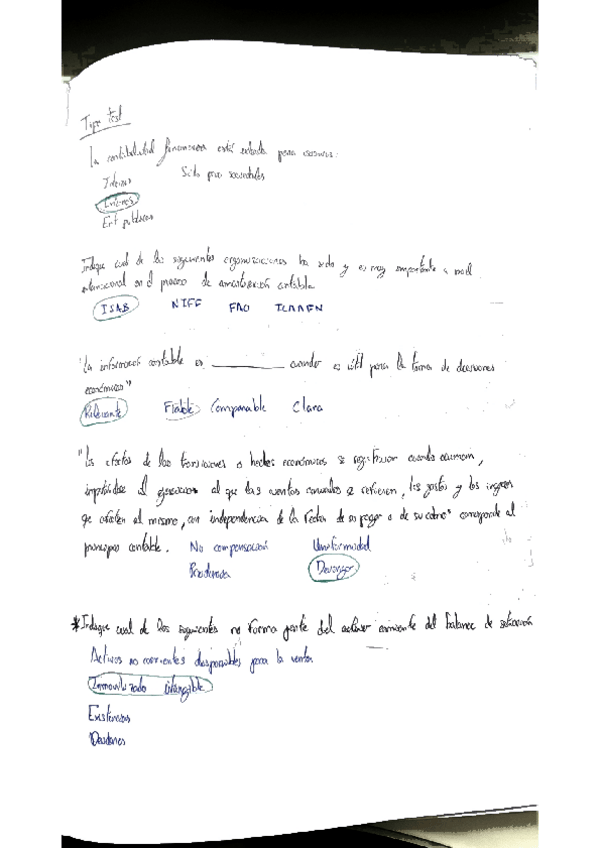 Tipo Test
La contabilidad financiera está enfocada para usuarios:
Internos Sólo para accionistas
Externos
Ent públicas
Indique cual de las siguientes organizaciones ha sido y es muy importante a nivel
internacional en el proceso de armonización contable
ISAB NIFF FAO
"La información contable es ________ cuando es útil para la toma de decisiones
económicas"
Relevante Fiable Comparable Clara
"Los efectos de las transacciones o hechos económicos se registrarán cuando ocurran,
imputándose al ejercicio al que las cuentas anuales se refieren, los gastos y los ingresos
que afecten al mismo, con independencia de la fecha de su pago o de su cobro" corresponde al
principio contable. No compensación Uniformidad
Prudencia Devengo
*Indique cual de los siguientes no forma parte del activo corriente del balance de situación
Activos no corrientes disponibles para la venta
Inmovilizado intangible
Existencias
Deudores